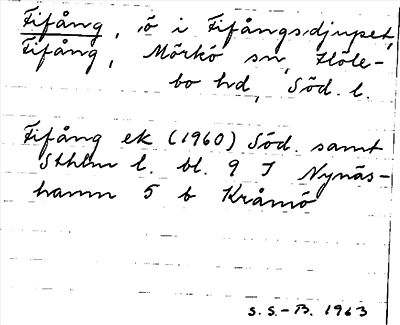 Fifång, ö i Fifångsdjupet,
Fifång, Mörkö sn, Höle-
bo hd, Söd. l.
Fifång ek (1960) Söd. samt
Sthlm l. bl. 9 I Nynäs-
hamn 5 b Kråmö
S.S.-B. 1963